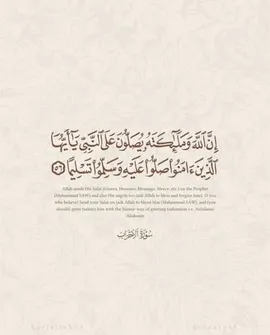 إِنَّ ٱللَّهَ وَمَلَـٰٓئِكَتَهُۥ يُصَلُّونَ عَلَى ٱلنَّبِىِّ يَـٰٓأَيُّهَا
ٱلَّذِينَ ءَامَنُوا۟ صَلُّوا۟ عَلَيْهِ وَسَلِّمُوا۟ تَسْلِيمًا ٥٦
Allah sends His Salat (Graces, Honours, Blessings, Mercy, etc.) on the Prophet
(Muhammad SAW) and also His angels too (ask Allah to bless and forgive him). O you
who believe! Send your Salat on (ask Allah to bless) him (Muhammad SAW), and (you
should) greet (salute) him with the Islamic way of greeting (salutation i.e. AsSalamu
'Alaikum).
سورة الأحزاب